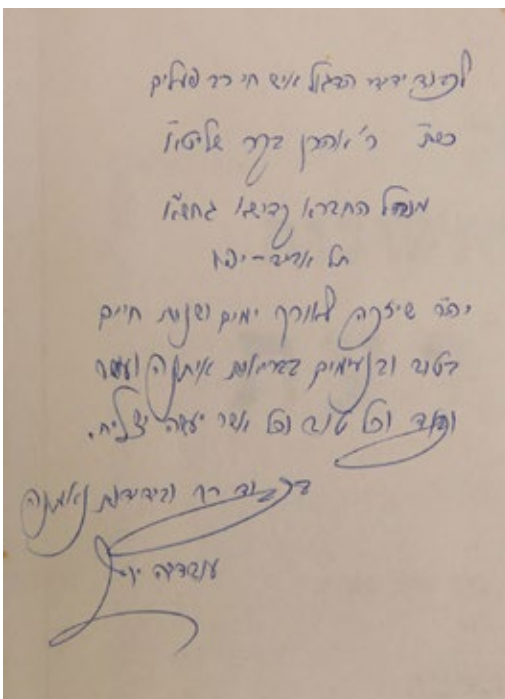 לכבוד ידידי הדגול איש חי רב פעלים
כש״ת ר' אהרן בקר שליט״א
מנהל החברא קדישא גחש״א
תל אביב-יפו
יה״ר שיזכה לאורך ימים ושנות חיים
בטוב ובנעימים בבריאות איתנה ועשר
וכבוד וכל טוב וכל אשר יעשה יצליח.
בכבוד רב ובידידות נאמנה
עובדיה יוסף